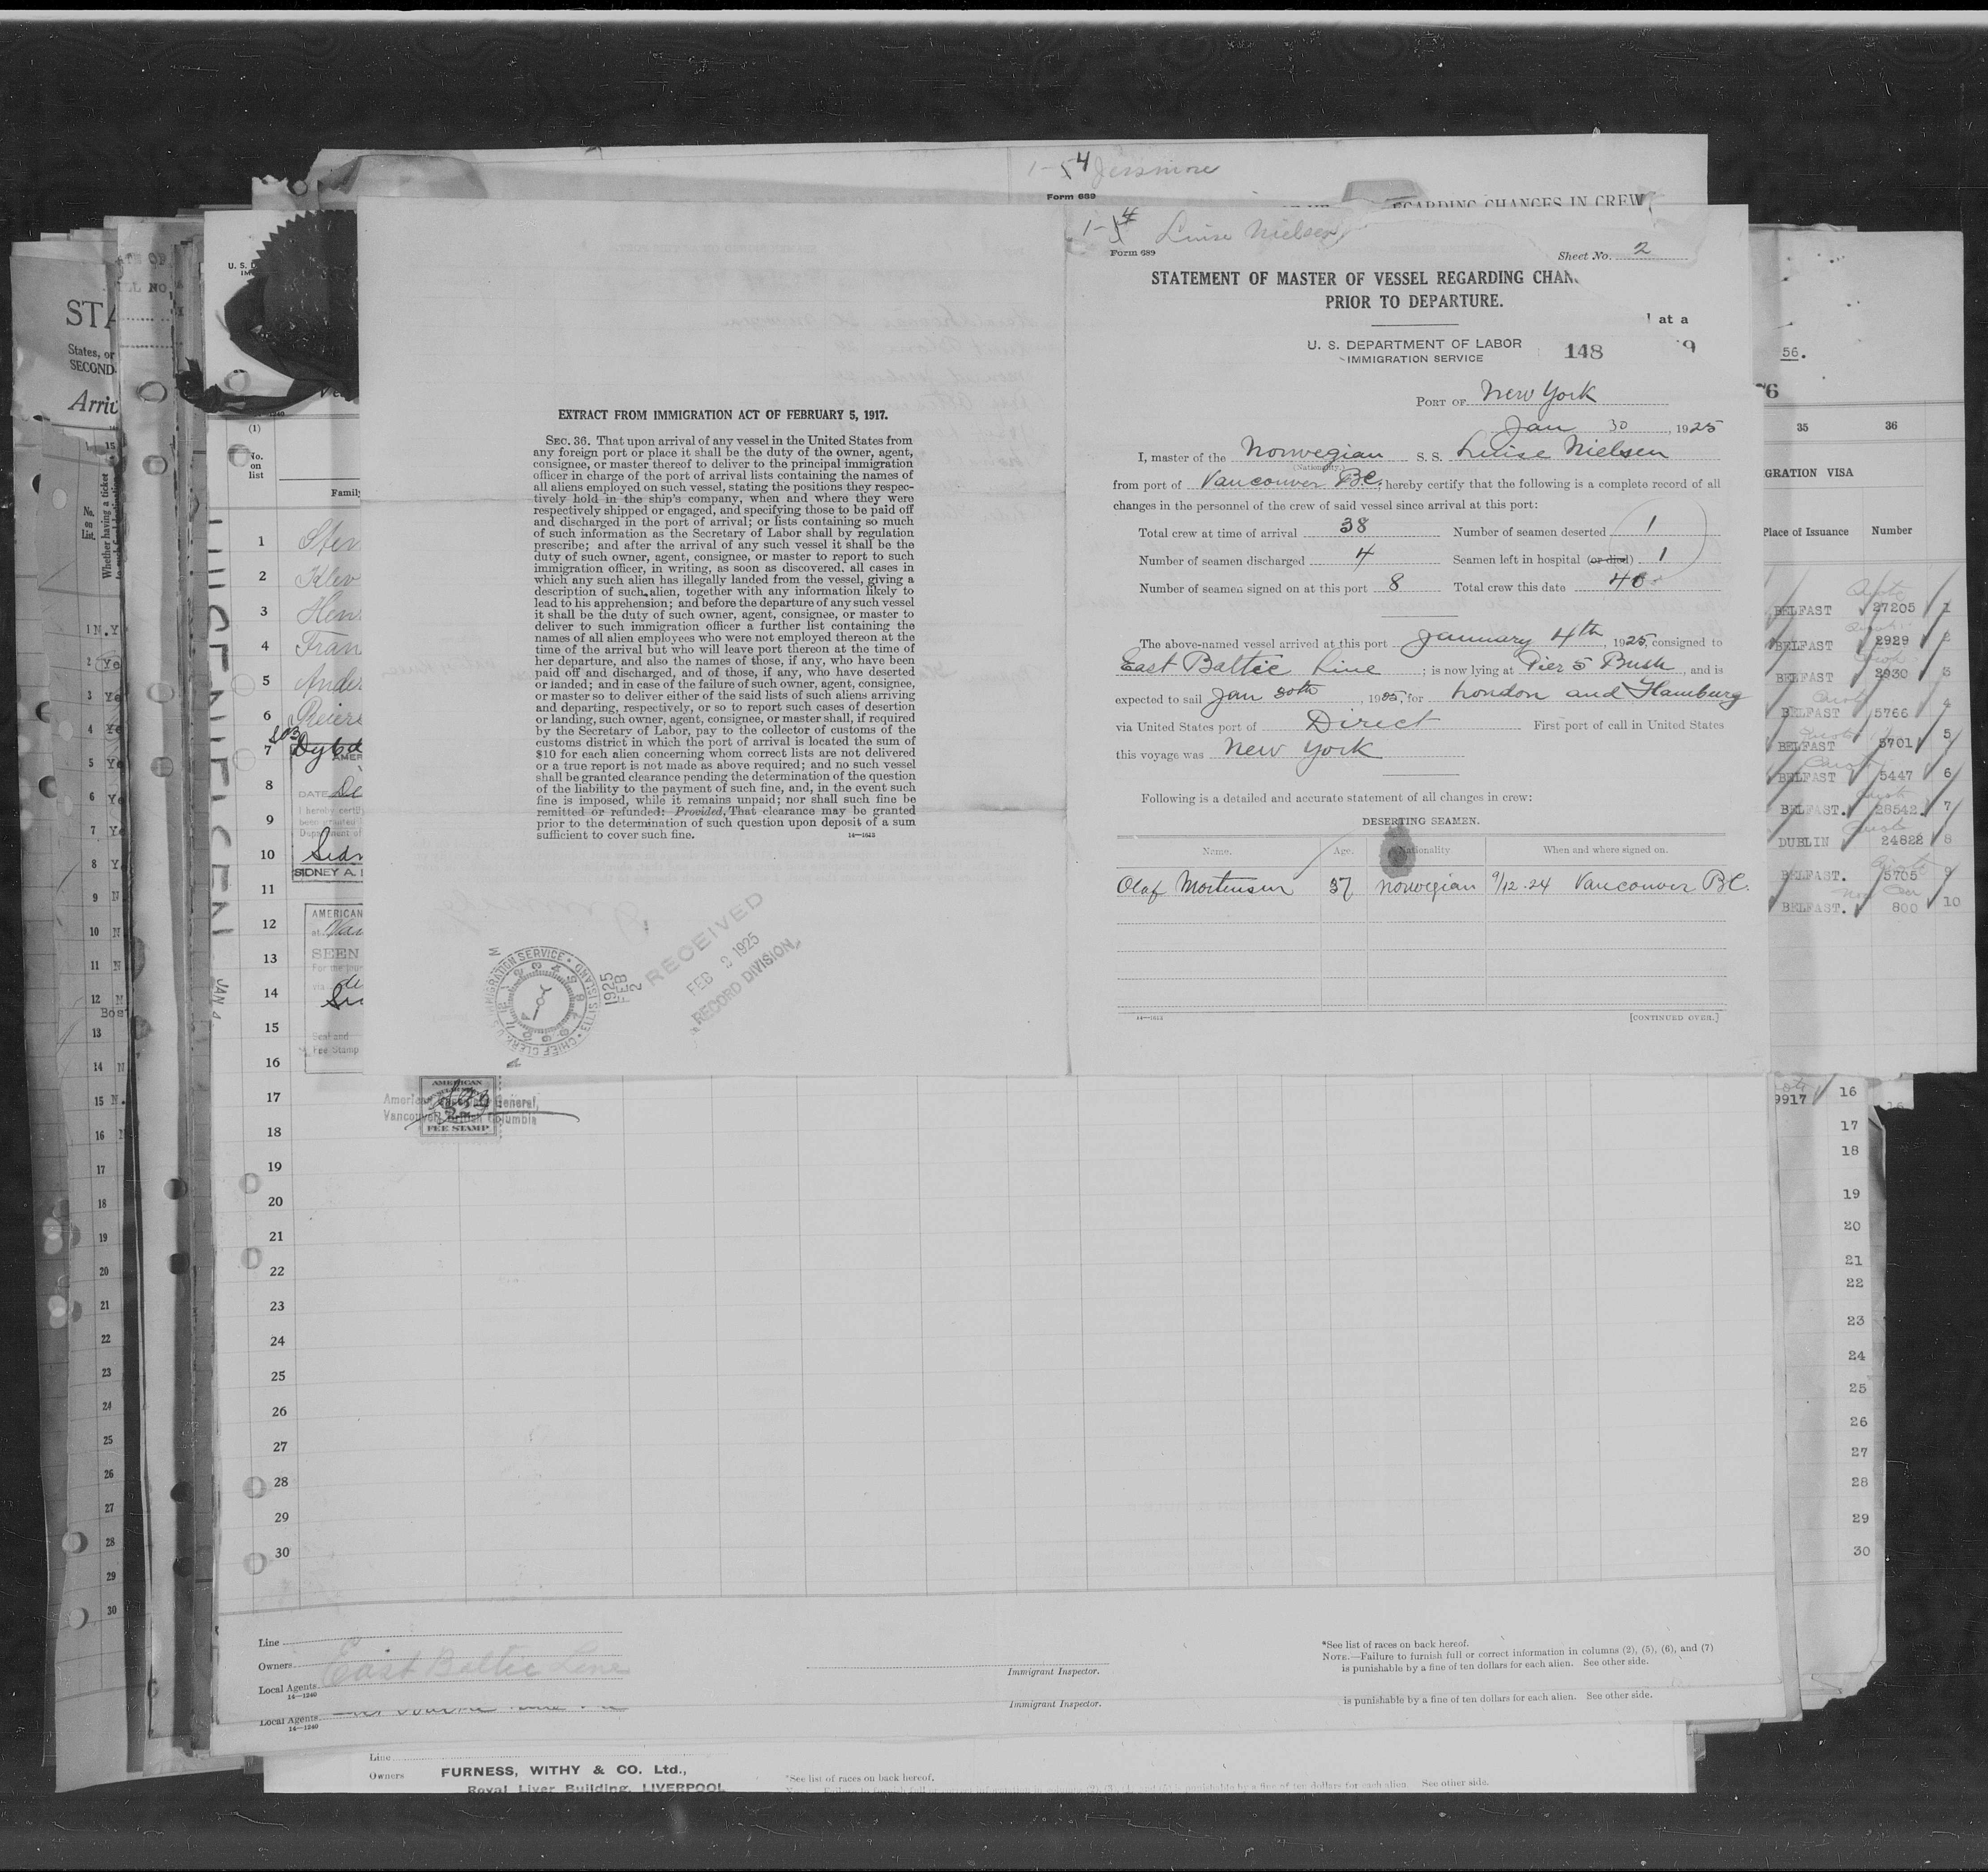 1-4 Jessmore
Form 689
REGARDING CHANGES IN CREW
1-4 Luise Nielsen
Form 689
Sheet No. 2
STATEMENT OF MASTER OF VESSEL REGARDING CHAN
PRIOR TO DEPARTURE.
at a
U. S. DEPARTMENT OF LABOR
IMMIGRATION SERVICE
148
9
PORT OF New York
Jan 30, 1925
I, master of the Norwegian S. S. Luise Nielsen
(Nationality.)
from port of Vancouver B.C. hereby certify that the following is a complete record of all
changes in the personnel of the crew of said vessel since arrival at this port:
Total crew at time of arrival 38 Number of seamen deserted 1
Number of seamen discharged 4 Seamen left in hospital (or died) 1
Number of seamen signed on at this port 8 Total crew this date 40
The above-named vessel arrived at this port January 4th, 1925, consigned to
East Baltic Line; is now lying at Pier 5 Bush, and is
expected to sail Jan 30th, 1925, for London and Hamburg
via United States port of Direct First port of call in United States
this voyage was New York
Following is a detailed and accurate statement of all changes in crew:
DESERTING SEAMEN.
Name. Age. Nationality. When and where signed on.
Olaf Mortensen 37 Norwegian 9/12.24 Vancouver B.C.
14—1613
[CONTINUED OVER.]
EXTRACT FROM IMMIGRATION ACT OF FEBRUARY 5, 1917.
SEC. 36. That upon arrival of any vessel in the United States from
any foreign port or place it shall be the duty of the owner, agent,
consignee, or master thereof to deliver to the principal immigration
officer in charge of the port of arrival lists containing the names of
all aliens employed on such vessel, stating the positions they respec-
tively hold in the ship's company, when and where they were
respectively shipped or engaged, and specifying those to be paid off
and discharged in the port of arrival; or lists containing so much
of such information as the Secretary of Labor shall by regulation
prescribe; and after the arrival of any such vessel it shall be the
duty of such owner, agent, consignee, or master to report to such
immigration officer, in writing, as soon as discovered, all cases in
which any such alien has illegally landed from the vessel, giving a
description of such alien, together with any information likely to
lead to his apprehension; and before the departure of any such vessel
it shall be the duty of such owner, agent, consignee, or master to
deliver to such immigration officer a further list containing the
names of all alien employees who were not employed thereon at the
time of the arrival but who will leave port thereon at the time of
her departure, and also the names of those, if any, who have been
paid off and discharged, and of those, if any, who have deserted
or landed; and in case of the failure of such owner, agent, consignee,
or master so to deliver either of the said lists of such aliens arriving
and departing, respectively, or so to report such cases of desertion
or landing, such owner, agent, consignee, or master shall, if required
by the Secretary of Labor, pay to the collector of customs of the
customs district in which the port of arrival is located the sum of
$10 for each alien concerning whom correct lists are not delivered
or a true report is not made as above required; and no such vessel
shall be granted clearance pending the determination of the question
of the liability to the payment of such fine, and, in the event such
fine is imposed, while it remains unpaid; nor shall such fine be
remitted or refunded: Provided, That clearance may be granted
prior to the determination of such question upon deposit of a sum
sufficient to cover such fine.
14—1613
IMMIGRATION SERVICE · ELLIS ISLAND · CHIEF CLERK
1925
FEB
2
RECEIVED
FEB 2 1925
RECORD DIVISION
56.
35 36
GRATION VISA
Place of Issuance Number
BELFAST 27205 1
BELFAST 2929 2
BELFAST 2930 3
BELFAST 5766 4
BELFAST 5701 5
BELFAST 5447 6
BELFAST. 28542 7
DUBLIN 24822 8
BELFAST. 5705 9
BELFAST. 800 10
9917 16
17
18
19
20
21
22
23
24
25
26
27
28
29
30
STA
States, or
SECOND
No. on List.
Whether having a ticket
(1)
No. on list
Family
1
2
3
4
5
6
7
8
9
10
11
12
13
14
15
16
17
18
19
20
21
22
23
24
25
26
27
28
29
30
SIDNEY A.
AMERICAN
SEEN
Seal and
Fee Stamp
AMERICAN
FEE STAMP
American Consulate General,
Vancouver, British Columbia
Line
Owners East Baltic Line
Local Agents
14—1240
Immigrant Inspector.
*See list of races on back hereof.
NOTE.—Failure to furnish full or correct information in columns (2), (5), (6), and (7)
is punishable by a fine of ten dollars for each alien. See other side.
Local Agents
14—1240
Immigrant Inspector.
is punishable by a fine of ten dollars for each alien. See other side.
Line
Owners FURNESS, WITHY & CO. Ltd.,
Royal Liver Building, LIVERPOOL
*See list of races on back hereof.